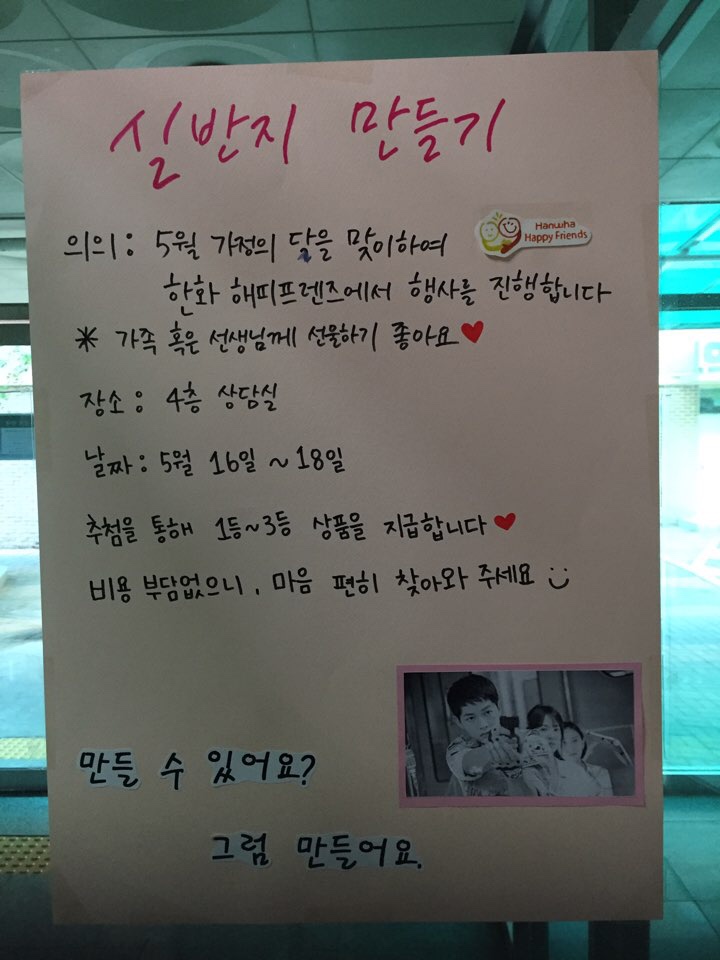 실반지 만들기
의의: 5월 가정의 달을 맞이하여
Hanwha
Happy Friends
한화 해피프렌즈에서 행사를 진행합니다
* 가족 혹은 선생님께 선물하기 좋아요♥
장소: 4층 상담실
날짜: 5월 16일 ~ 18일
추첨을 통해 1등~3등 상품을 지급합니다♥
비용 부담없으니, 마음 편히 찾아와 주세요
만들 수 있어요?
그럼 만들어요.